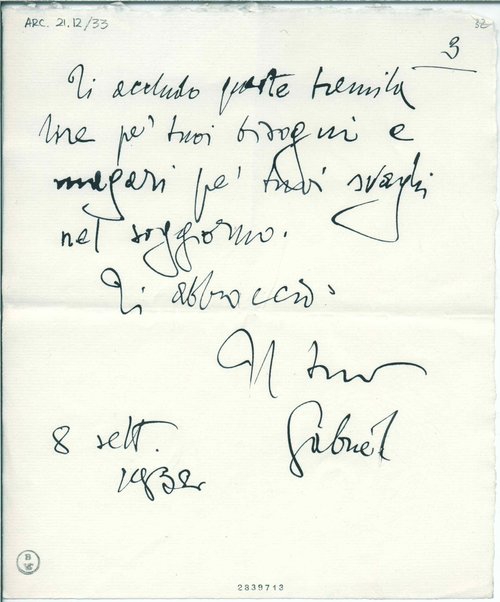 ARC. 21.12/33
32
3
Ti accludo queste tremila
lire pe' tuoi bisogni e
magari pe' tuoi svaghi
nel soggiorno.
Ti abbraccio:
Il tuo
Gabriele
8 sett.
1932
2839713